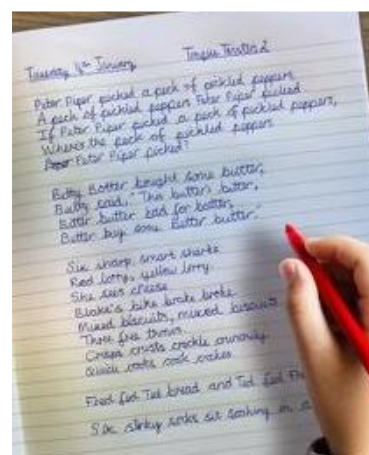 Tuesday 4th January Tongue Twisters 2
Peter Piper picked a peck of pickled peppers
A peck of pickled peppers Peter Piper picked
If Peter Piper picked a peck of pickled peppers,
Where's the peck of pickled peppers
Peter Piper picked?
Betty Botter bought some butter,
Betty said, "This butter's bitter,
Bitter butter bad for batter,
Better buy some better butter."
Six sharp smart sharks
Red lorry, yellow lorry.
She sees cheese
Blake's bike broke
Mixed biscuits, mixed biscuits
Three free
Crisps crusts crackle crunchily.
Quick cook cakes
Fred fed Ted bread and Ted fed
Six stinky socks sit soaking in